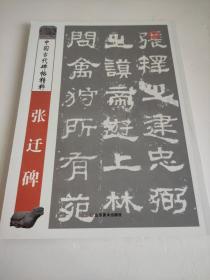 中国古代碑帖精粹
张迁碑
張釋之建忠弼
之謨帝遊上林
問禽狩所有苑